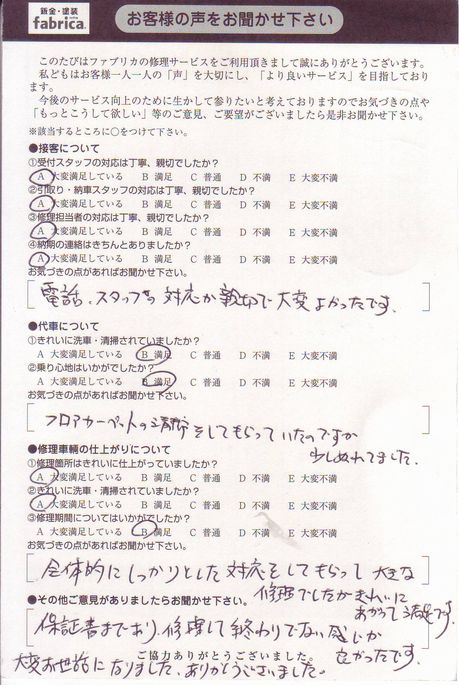 鈑金・塗装
fabrica
お客様の声をお聞かせ下さい
このたびはファブリカの修理サービスをご利用頂きまして誠にありがとうございます。
私どもはお客様一人一人の「声」を大切にし、「より良いサービス」を目指しており
ます。
今後のサービス向上のために生かして参りたいと考えておりますのでお気づきの点や
「もっとこうして欲しい」等のご意見、ご要望がございましたら是非お聞かせ下さい。
※該当するところに○をつけて下さい。
●接客について
①受付スタッフの対応は丁寧、親切でしたか?
A 大変満足している B 満足 C 普通 D 不満 E 大変不満
②引取り・納車スタッフの対応は丁寧、親切でしたか?
A 大変満足している B 満足 C 普通 D 不満 E 大変不満
③修理担当者の対応は丁寧、親切でしたか?
A 大変満足している B 満足 C 普通 D 不満 E 大変不満
④納期の連絡はきちんとありましたか?
A 大変満足している B 満足 C 普通 D 不満 E 大変不満
お気づきの点があればお聞かせ下さい。
電話、スタッフの対応が親切で大変よかったです。
●代車について
①きれいに洗車・清掃されていましたか?
A 大変満足している B 満足 C 普通 D 不満 E 大変不満
②乗り心地はいかがでしたか?
A 大変満足している B 満足 C 普通 D 不満 E 大変不満
お気づきの点があればお聞かせ下さい。
フロアカーペットの清掃をしてもらっていたのですが
少しぬれてました。
●修理車輌の仕上がりについて
①修理箇所はきれいに仕上がっていましたか?
A 大変満足している B 満足 C 普通 D 不満 E 大変不満
②きれいに洗車・清掃されていましたか?
A 大変満足している B 満足 C 普通 D 不満 E 大変不満
③修理期間についてはいかがでしたか?
A 大変満足している B 満足 C 普通 D 不満 E 大変不満
お気づきの点があればお聞かせ下さい。
全体的にしっかりとした対応をしてもらって大きな
修理でしたがきれいに
あがって満足です
●その他ご意見がありましたらお聞かせ下さい。
保証書まであり、修理して終わりでない感じが
良かったです。
大変お世話になりました。ありがとうございました。
ご協力ありがとうございました。